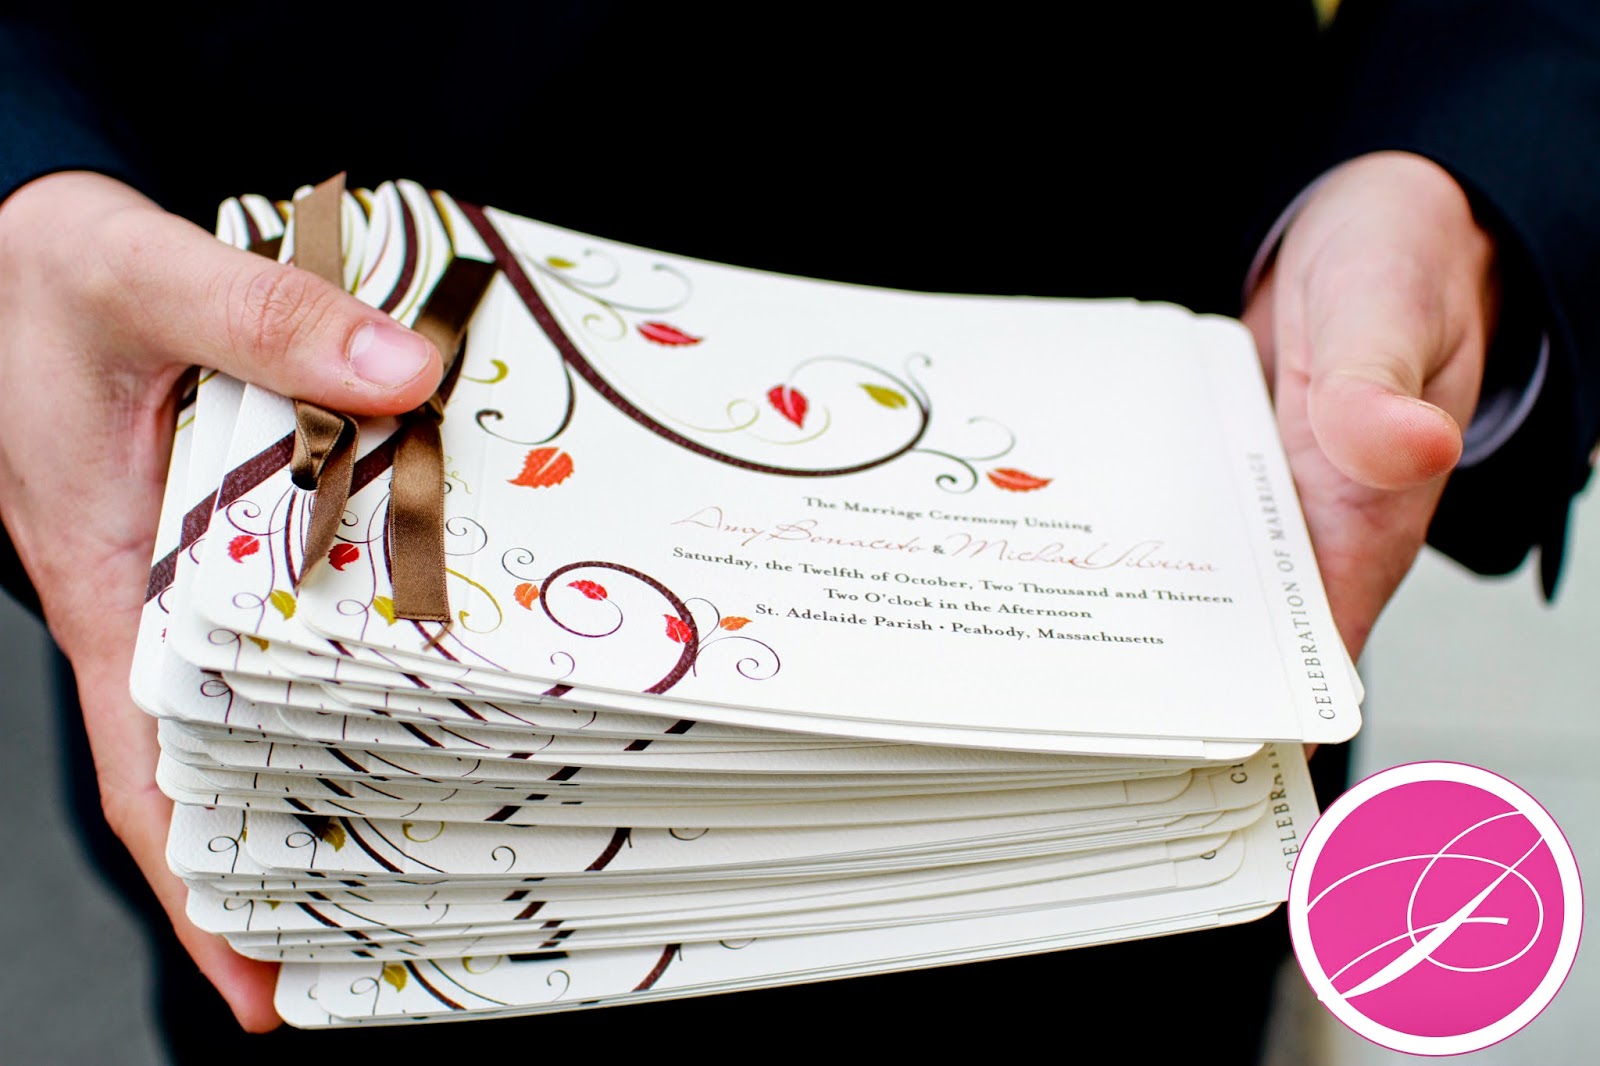 The Marriage Ceremony Uniting
Amy Bonacito & Michael Silveira
Saturday, the Twelfth of October, Two Thousand and Thirteen
Two O'clock in the Afternoon
St. Adelaide Parish • Peabody, Massachusetts
CELEBRATION OF MARRIAGE
CELEBRA